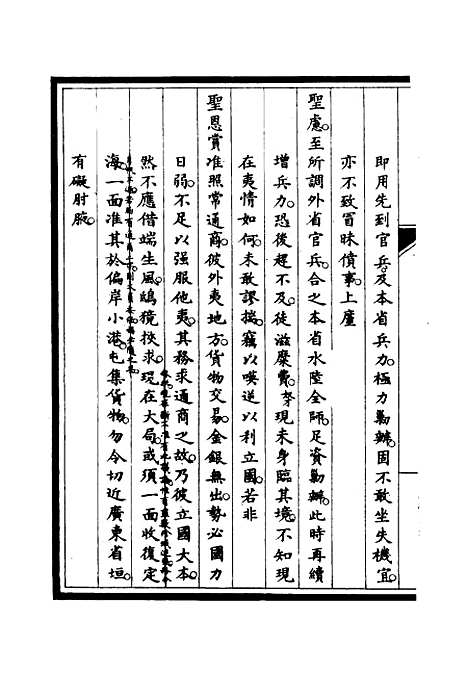 即用先到官兵及本省兵力極力勦辦固不敢坐失機宜
亦不致冒昧僨事上廑
聖慮至所調外省官兵合之本省水陸全師足資勦辦此時再續
增兵力恐後趕不及徒滋糜費琴現未身臨其境不知現
在夷情如何未敢謬揣竊以㗆逆以利立國若非
聖恩賞准照常通商彼外夷地方貨物交易金銀無出勢必國力
日弱不足以强服他夷其務求通商之故乃彼立國大本
然不應借端生風鴟獍挾求現在大局或須一面收復定
海一面准其於偏岸小港屯集貨物勿令切近廣東省垣
有礙肘腋